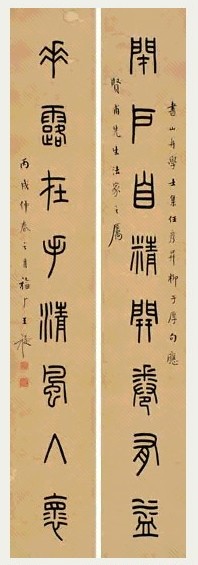 書山舟學士集任彦昇柳子厚句應
閉戶自精開卷有益
賢甫先生法家之屬
垂露在手清風入懷
丙戌仲春之月福厂王禔